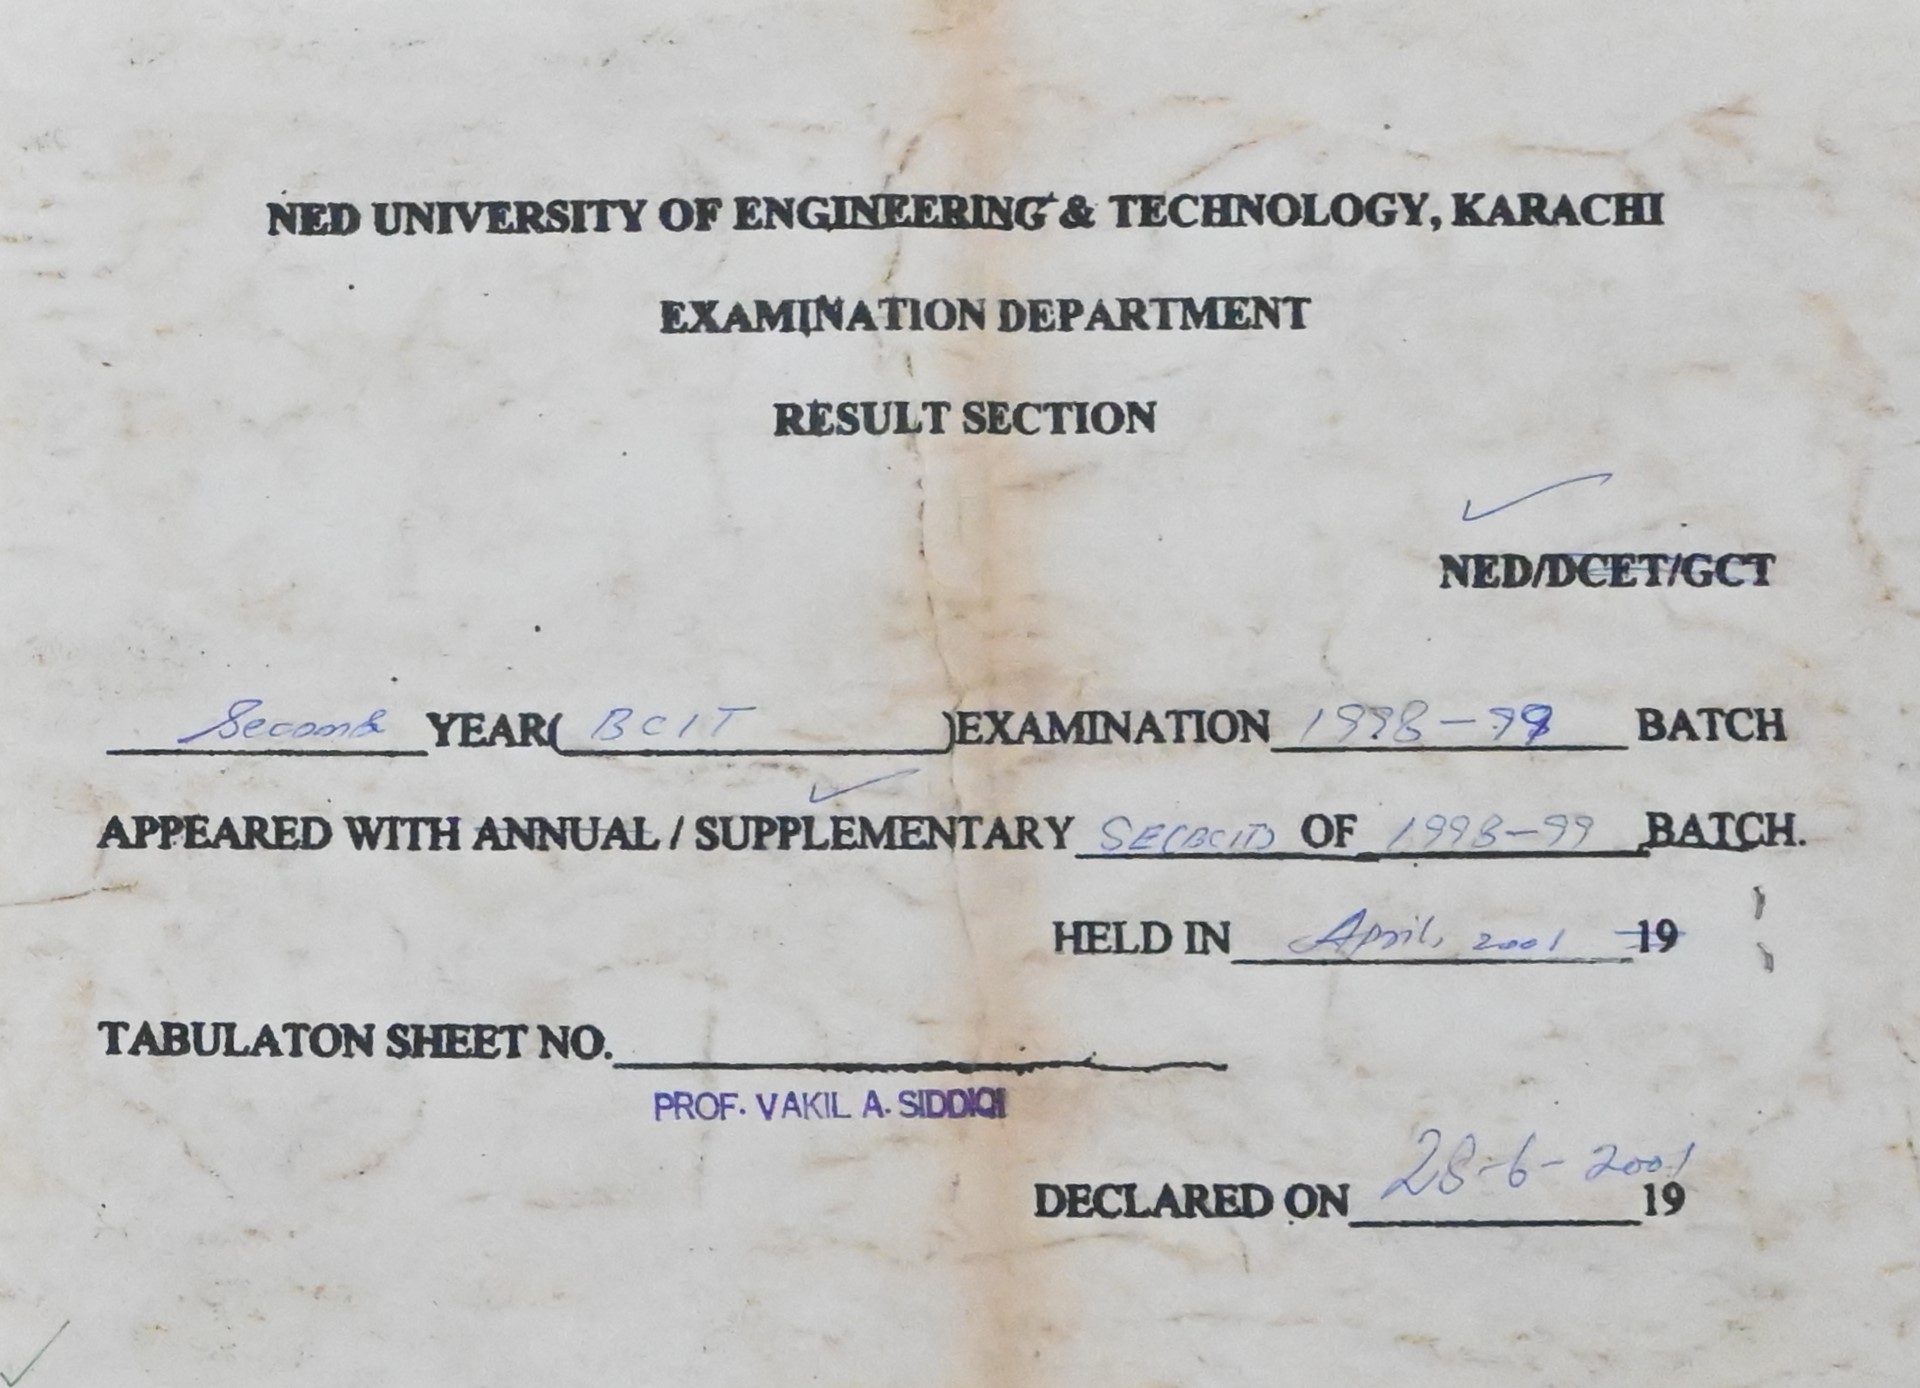 NED UNIVERSITY OF ENGINEERING & TECHNOLOGY, KARACHI
EXAMINATION DEPARTMENT
RESULT SECTION
NED/DCET/GCT
Second YEAR( BCIT )EXAMINATION 1998-99 BATCH
APPEARED WITH ANNUAL / SUPPLEMENTARY SE(BCIT) OF 1998-99 BATCH.
HELD IN April, 2001 19
TABULATON SHEET NO.
PROF. VAKIL A. SIDDIQI
DECLARED ON 28-6-2001 19